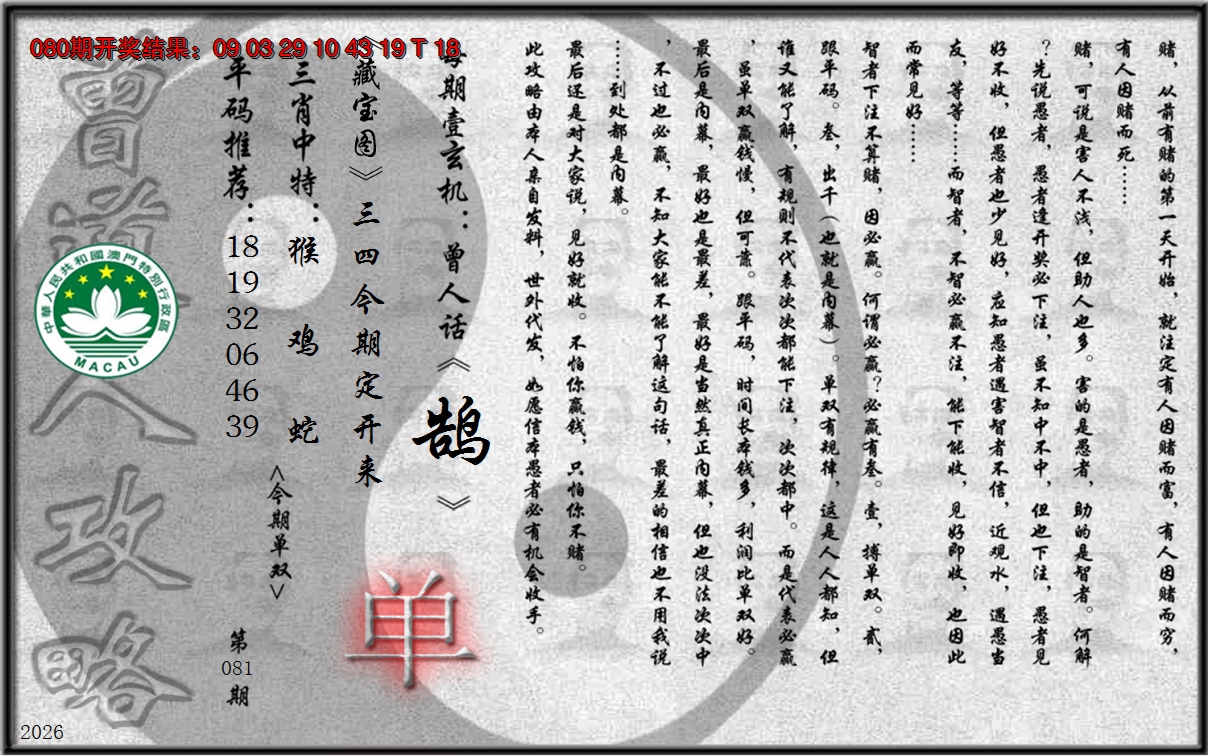 080期开奖结果：09 03 29 10 43 19 T 18
赌，从前有赌的第一天开始，就注定有人因赌而富，有人因赌而穷，
有人因赌而死……
赌，可说是害人不浅，但助人也多。害的是愚者，助的是智者。何解
？先说愚者，愚者逢开奖必下注，虽不知中不中，但也下注，愚者见
好不收，但愚者也少见好，应知愚者遇害智者不信，近观水，遇愚当
友，等等……而智者，不智必赢不注，能下能收，见好即收，也因此
而常见好……
智者下注不算赌，因必赢。何谓必赢？必赢有叁。壹，搏单双。贰，
跟平码。叁，出千（也就是内幕）。单双有规律，这是人人都知，但
谁又能了解，有规则不代表次次都能下注，次次都中。而是代表必赢
，虽单双赢钱慢，但可靠。跟平码，时间长本钱多，利润比单双好。
最后是内幕，最好也是最差，最好是当然真正内幕，但也没法次次中
，不过也必赢，不知大家能不能了解这句话，最差的相信也不用我说
……到处都是内幕。
最后还是对大家说，见好就收。不怕你赢钱，只怕你不赌。
此攻略由本人亲自发料，世外代发，如愿信本愚者必有机会收手。
每期壹玄机：曾人话《鹄》
《藏宝图》三四今期定开来
三肖中特：猴 鸡 蛇
<今期单双>
单
平码推荐：
18
19
32
06
46
39
第
081
期
曾道人攻略
中華人民共和國澳門特別行政區
MACAU
2026